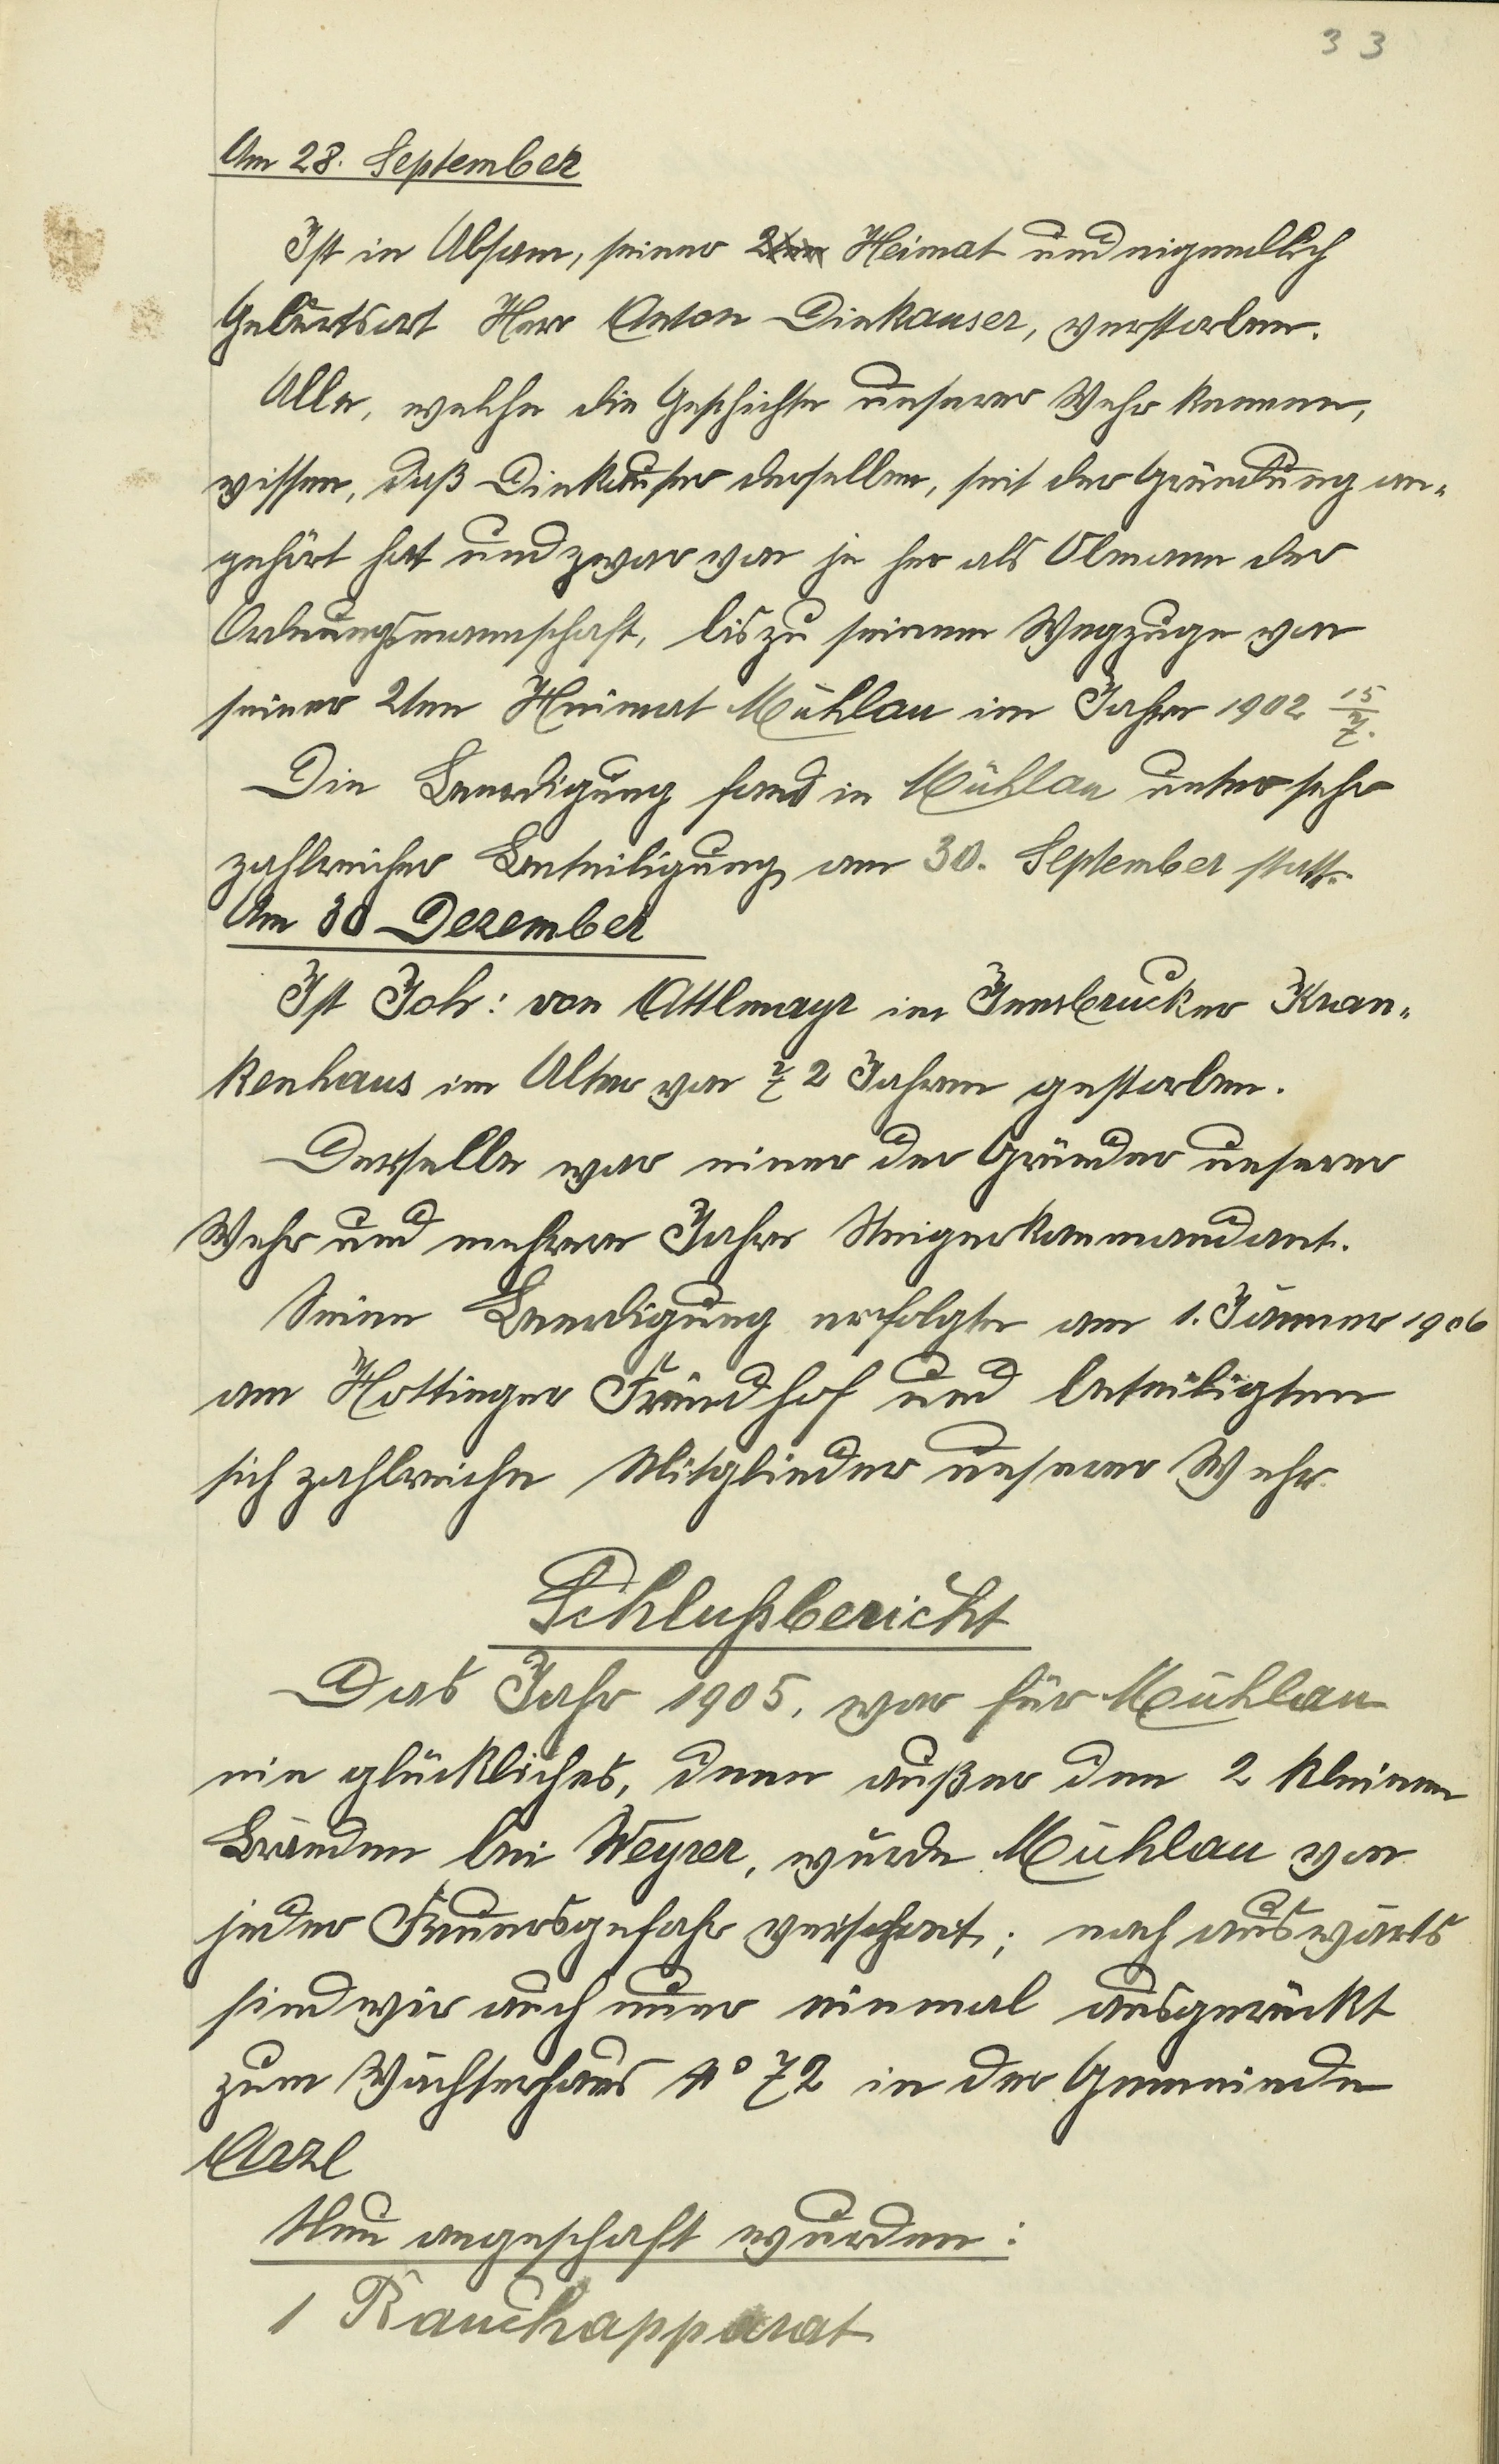 33
Am 28. September
Ist in Absam, seiner 2ten Heimat und eigendlich
Geburtsort Herr Anton Dinkauser, verstorben.
Alle, welche die Geschichte unserer Wehr kennen,
wissen, daß Dinkauser derselben, seit der Gründung an-
gehört hat und zwar von je her als Obmann der
Ordnungsmannschaft, bis zu seinem Wegzuge von
seiner 2ten Heimat Mühlau im Jahre 1902 15/7.
Die Beerdigung fand in Mühlau unter sehr
zahlreicher Beteiligung am 30. September statt.
Am 30 Dezember
Ist Joh: von Attlmayr im Innsbrucker Kran-
kenhaus im Alter von 72 Jahren gestorben.
Derselbe war einer der Gründer unserer
Wehr und mehrere Jahre Steigerkommandant.
Seine Beerdigung erfolgte am 1. Jänner 1906
am Hottinger Freindhof und beteiligten
sich zahlreiche Mitglieder unserer Wehr.
Schlußbericht
Das Jahr 1905, war für Mühlau
ein glückliches, denn außer den 2 kleinen
Bränden bei Weyrer, wurde Mühlau von
jeder Feuersgefahr verschont; nach auswärts
sind wir auch nur einmal ausgerückt
zum Wächterhaus No 72 in der Gemeinde
Arzl
Neu angeschaft wurden:
1 Rauchapparat